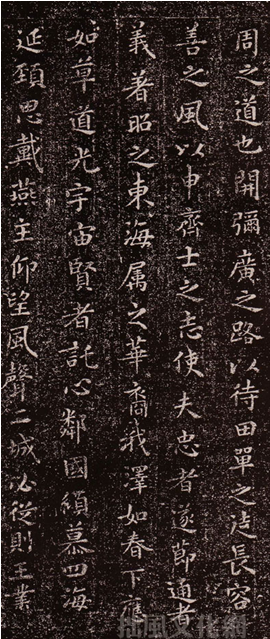 周之道也開彌廣之路以待田單之徒長容
善之風以申齊士之志使夫忠者遂節通者
義著昭之東海属之華裔我澤如春下應
如草道光宇宙賢者託心鄰國傾慕四海
延頸思戴燕主仰望風聲二城必從則王業
拙風文化網